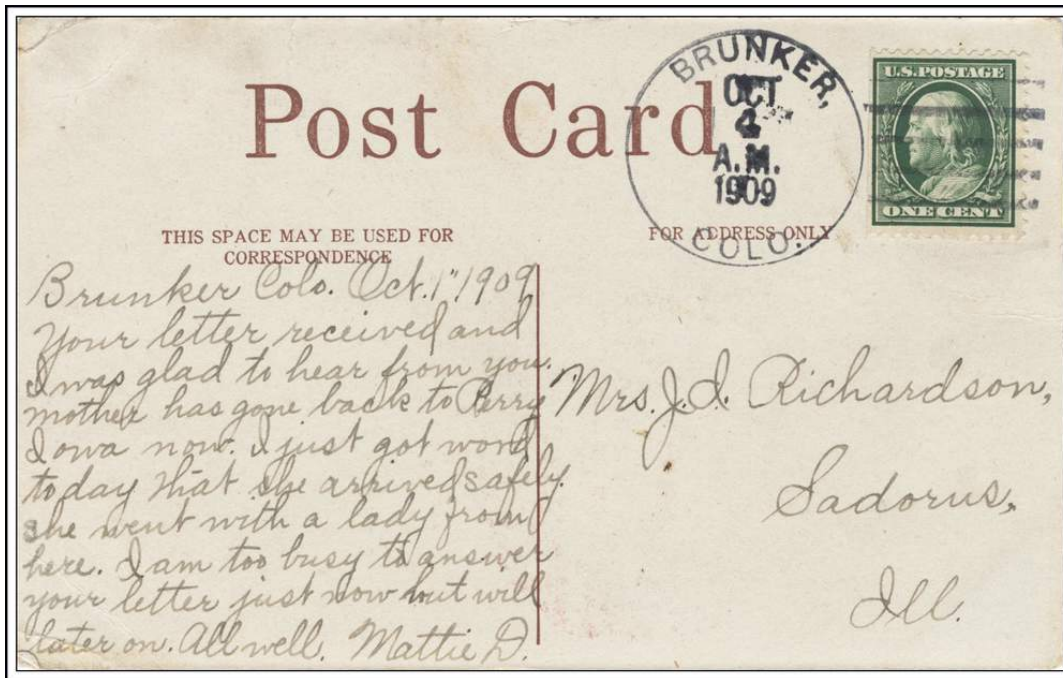 Post Card
BRUNKER,
OCT
4
A.M.
1909
COLO.
U.S. POSTAGE
ONE CENT
THIS SPACE MAY BE USED FOR
CORRESPONDENCE
FOR ADDRESS ONLY
Brunker Colo. Oct. 1" 1909
Your letter received and
I was glad to hear from you.
mother has gone back to Perry
Iowa now. I just got word
today that she arrived safely.
she went with a lady from
here. I am too busy to answer
your letter just now but will
later on. All well. Mattie D.
Mrs. J. I. Richardson,
Sadorus,
Ill.